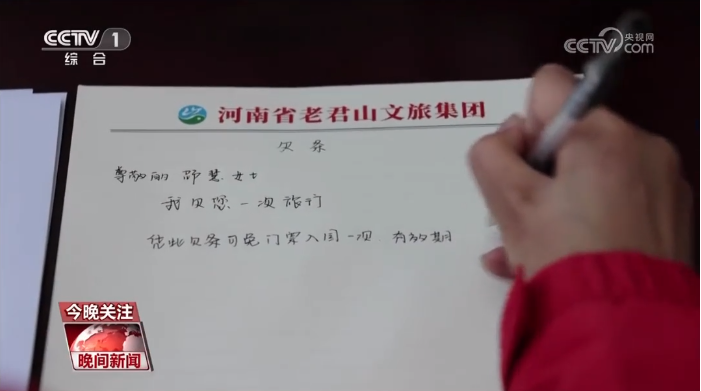 CCTV 1
综合
央视网
CCTV.com
河南省老君山文旅集团
欠条
尊敬的 邵慧女士
我欠您一次旅行
凭此欠条可免门票入园一次 有效期
今晚关注
晚间新闻